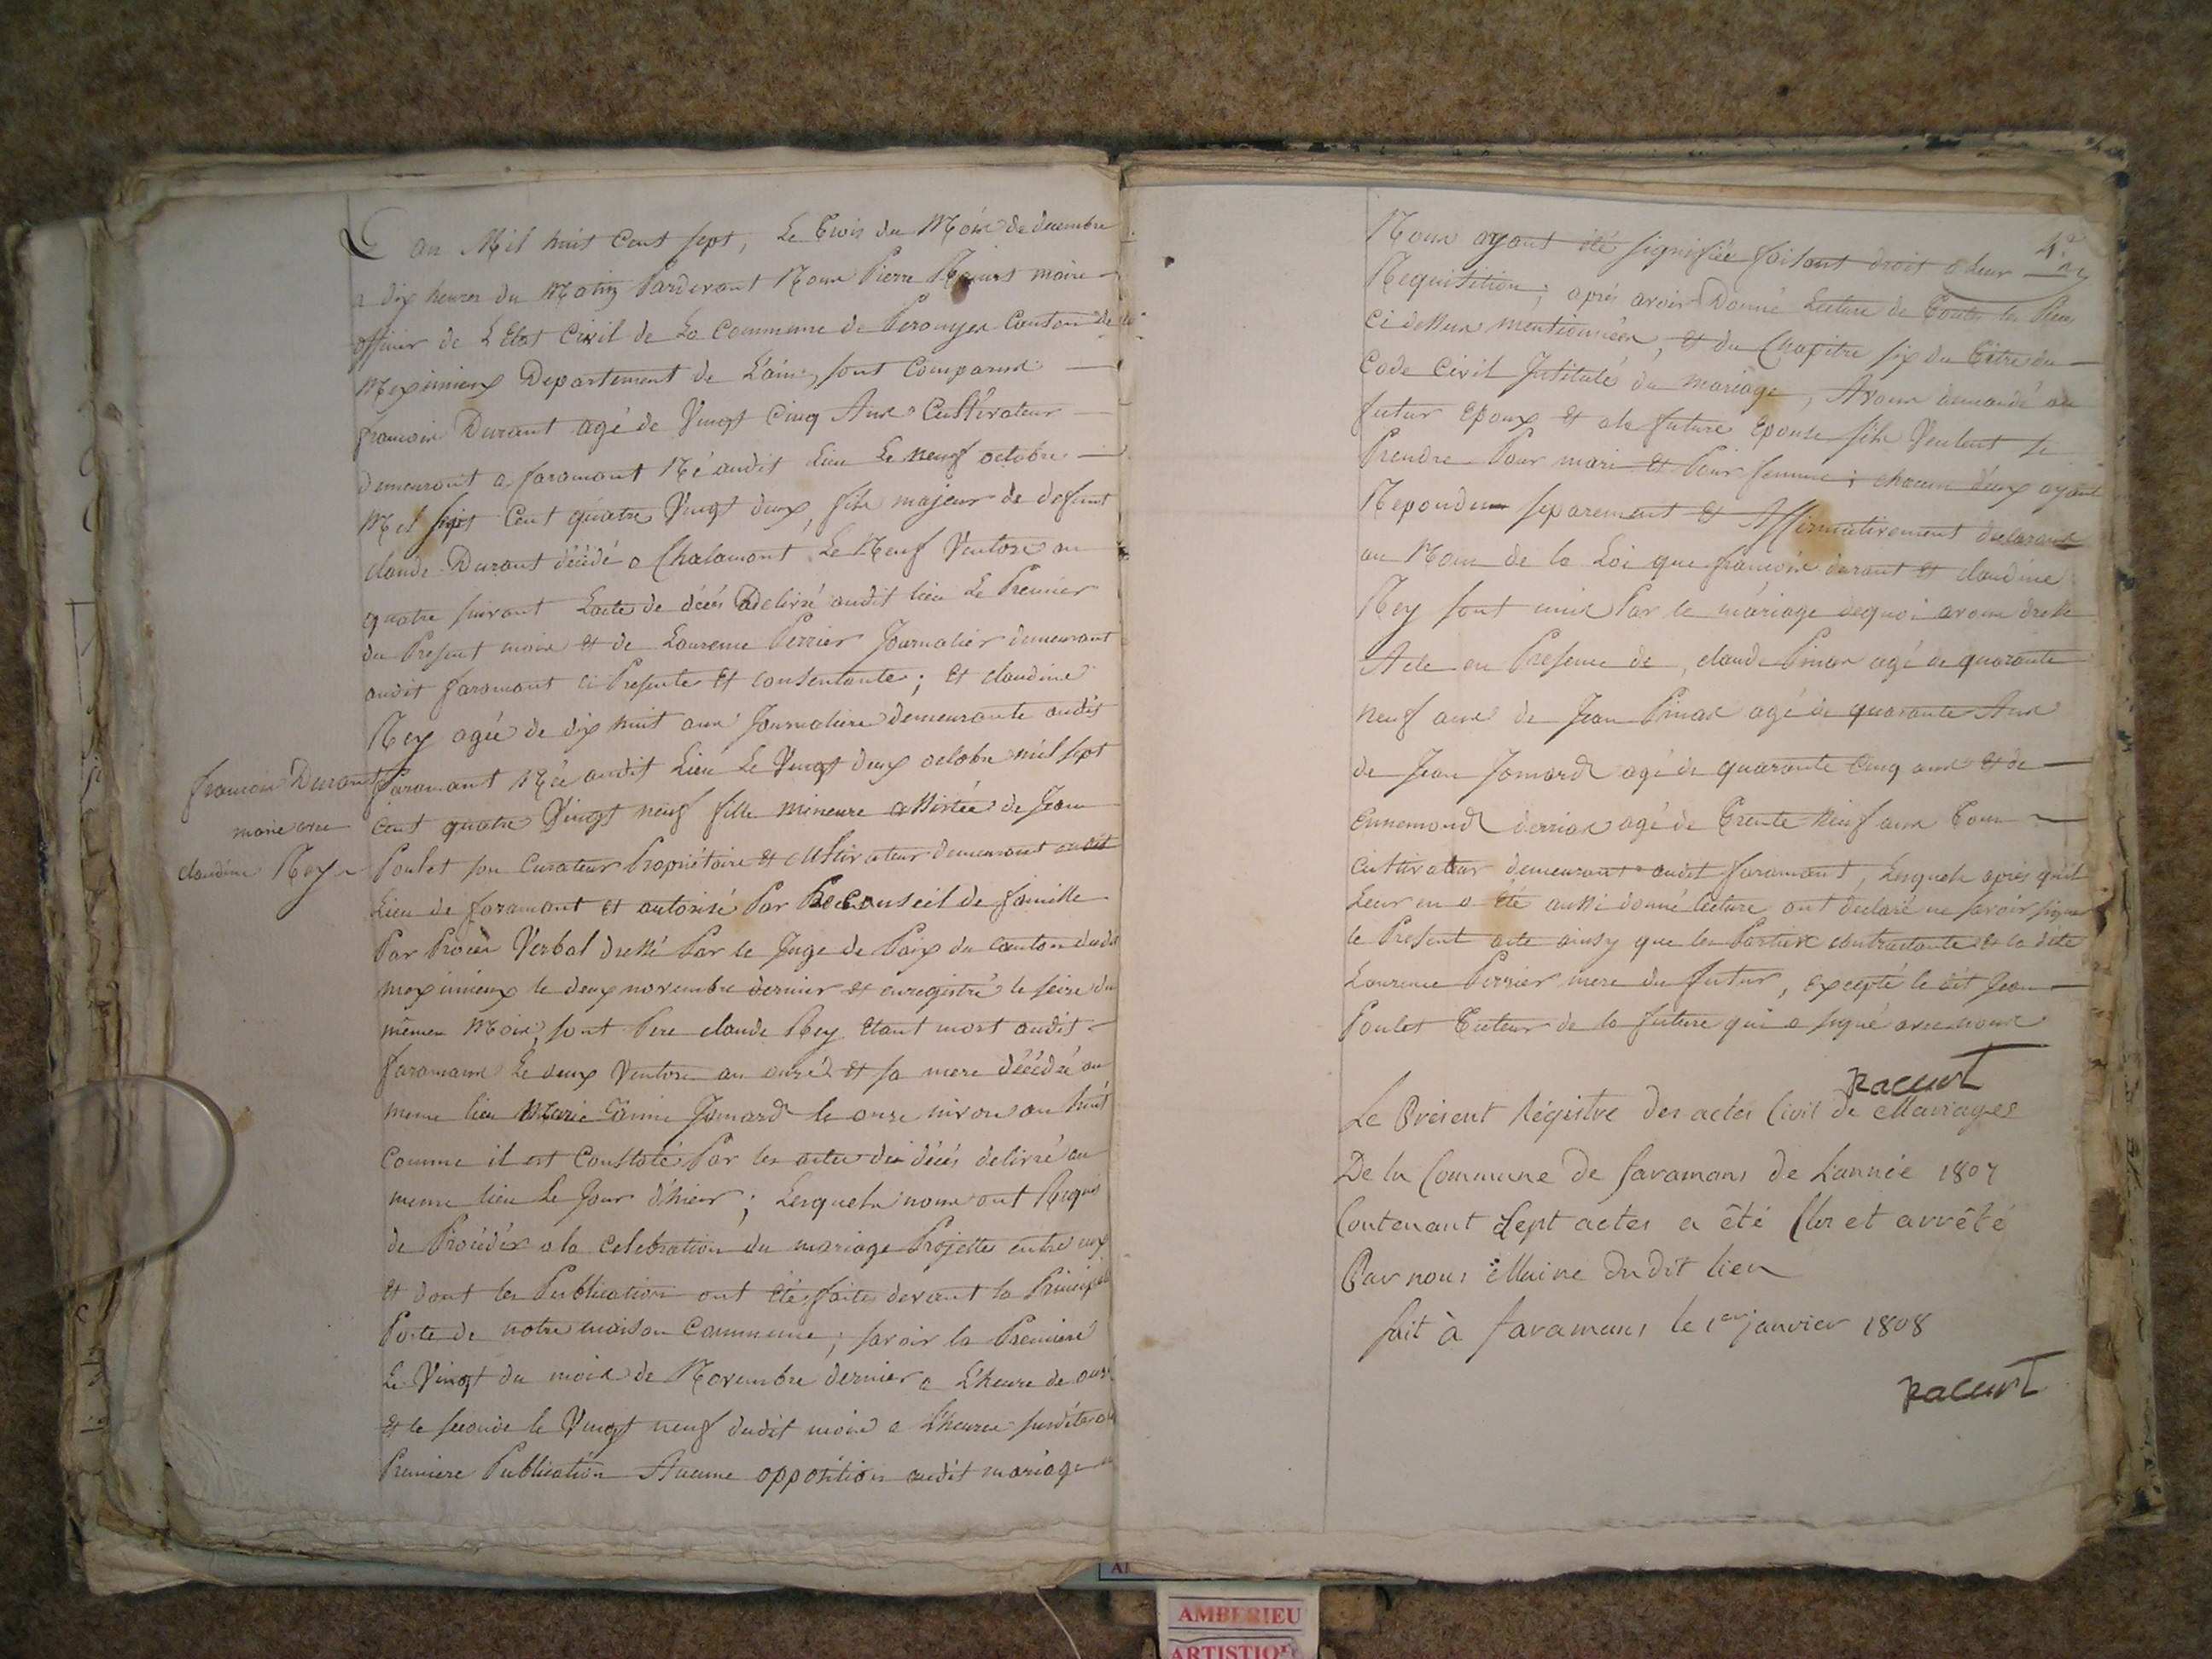 L'an Mil huit Cent sept, Le trois du Mois de decembre
a dix heures du Matin Pardevant Nous Pierre Racurt maire
officier de L'Etat Civil de La Commune de Perouges Canton de
Meximieux Departement de L'ain, sont Comparus
francois Durant agé de Vingt Cinq Ans Cultivateur
demeurant a faramant Né audit Lieu Le neuf octobre
Mil sept Cent quatre Vingt deux, fils majeur de defunt
claude Durant décédé a Chalamont Le Neuf Ventose an
quatre suivant L'acte de décés delivré audit lieu Le Premier
du Present mois et de Laurence Perrier Journalier demeurant
audit faramant ci Presente et consentante; et claudine
Rey agée de dix huit ans Journaliere demeurante audit
francois Durant
marié avec
claudine Rey
faramant Née audit Lieu Le Vingt deux octobre mil sept
cent quatre Vingt neuf fille mineure assistée de Jean
Poulet son Curateur Propriétaire et cultivateur demeurant audit
Lieu de faramant et autorisé Par le Conseil de famille
Par Procès Verbal dressé Par le Juge de Paix du canton dudit
meximieux le deux novembre dernier et enregistré le seize du
mêmes Mois, sont Pere claude Rey Etant mort audit
faramans Le deux Ventose an onze et sa mere décédée au
meme lieu Marie Jomard le onze nivose an huit
Comme il est Constaté Par les actes de décés delivré au
meme lieu Le Jour d'hier; Lesquels nous ont Requis
de Procéder a la celebration du mariage Projettes entre eux
et dont les Publication ont été faites devant la Principale
Porte de notre maison Commune; savoir la Premiere
Le Vingt du mois de Novembre dernier a L'heure de onze
et la seconde le Vingt neuf dudit mois a L'heure susdite
Premiere Publication Aucune opposition audit mariage
4.e
Nous ayant été signifiée faisant droit a leur
Requisition; aprés avoir Donné Lecture de Toutes les Pieces
Ci dessus mentionnées, et du Chapitre six du Titre du
Code Civil Jntitulé du mariage, Avons demandé au
futur Epoux et a la future Epouse s'ils Veulent se
Prendre Pour mari et Pour femme; chacun d'eux ayant
Repondu separement et Affirmativement declarons
au Nom de la Loi que francois durant et claudine
Rey sont unis Par le mariage dequoi avons dressé
Acte en Presence de, claude Pinas agé de quarante
neuf ans de Jean Pinas agé de quarante Ans
de Jean Jomard agé de quarante Cinq ans et de
Ennemond derrias agé de Trente Neuf ans Tous
cultivateur demeurant audit faramant, Lesquels après qu'il
Leur en a été aussi donné lecture ont declaré ne savoir signer
le Present acte ainsy que les Parties contractantes et la dite
Laurence Perrier mere du futur, excepté le dit Jean
Poulet Tuteur de la future qui a signé avec nous
Racurt
Le Présent Régistre des actes Civil de Mariages
De la Commune de faramans de L'année 1807
Contenant Sept actes a été Clos et arrêté
Par nous Maire dudit lieu
fait à faramans le 1er janvier 1808
Racurt
AMBERIEU
ARTISTIQUE